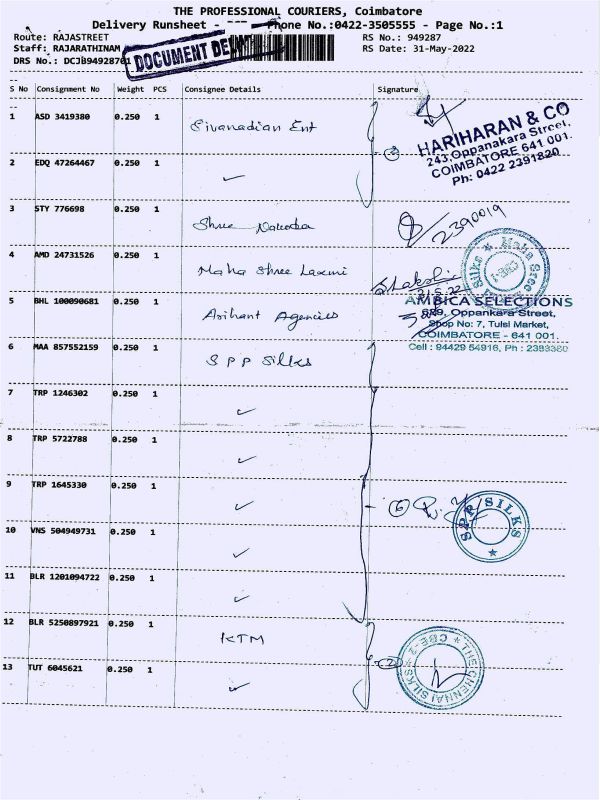 THE PROFESSIONAL COURIERS, Coimbatore
Delivery Runsheet - Phone No.:0422-3505555 - Page No.:1
Route: RAJASTREET RS No.: 949287
Staff: RAJARATHINAM RS Date: 31-May-2022
DRS No.: DCJB94928701
DOCUMENT
S No Consignment No Weight PCS Consignee Details Signature
1 ASD 3419380 0.250 1 Sivanadian Ent
HARIHARAN & CO
243, Oppanakara Street,
COIMBATORE 641 001.
Ph: 0422 2391820
2 EDQ 47264467 0.250 1 ✓ 2
3 STY 776698 0.250 1 Shree 2390019
4 AMD 24731526 0.250 1 Maha Shree Laxmi
Maha Shree Silks
5 BHL 100090681 0.250 1 Arihant Agencies
AMBICA SELECTIONS
Oppankara Street,
Shop No: 7, Tulsi Market,
COIMBATORE - 641 001.
Cell : 94429 54916, Ph : 2393380
6 MAA 857552159 0.250 1 S P P Silks
7 TRP 1246302 0.250 1 ✓
8 TRP 5722788 0.250 1 ✓
9 TRP 1645330 0.250 1 ✓ 6
SPP SILKS
10 VNS 504949731 0.250 1 ✓
11 BLR 1201094722 0.250 1 ✓
12 BLR 5250897921 0.250 1 KTM
13 TUT 6045621 0.250 1 ✓ 2
THE CHENNAI SILKS CBE-2